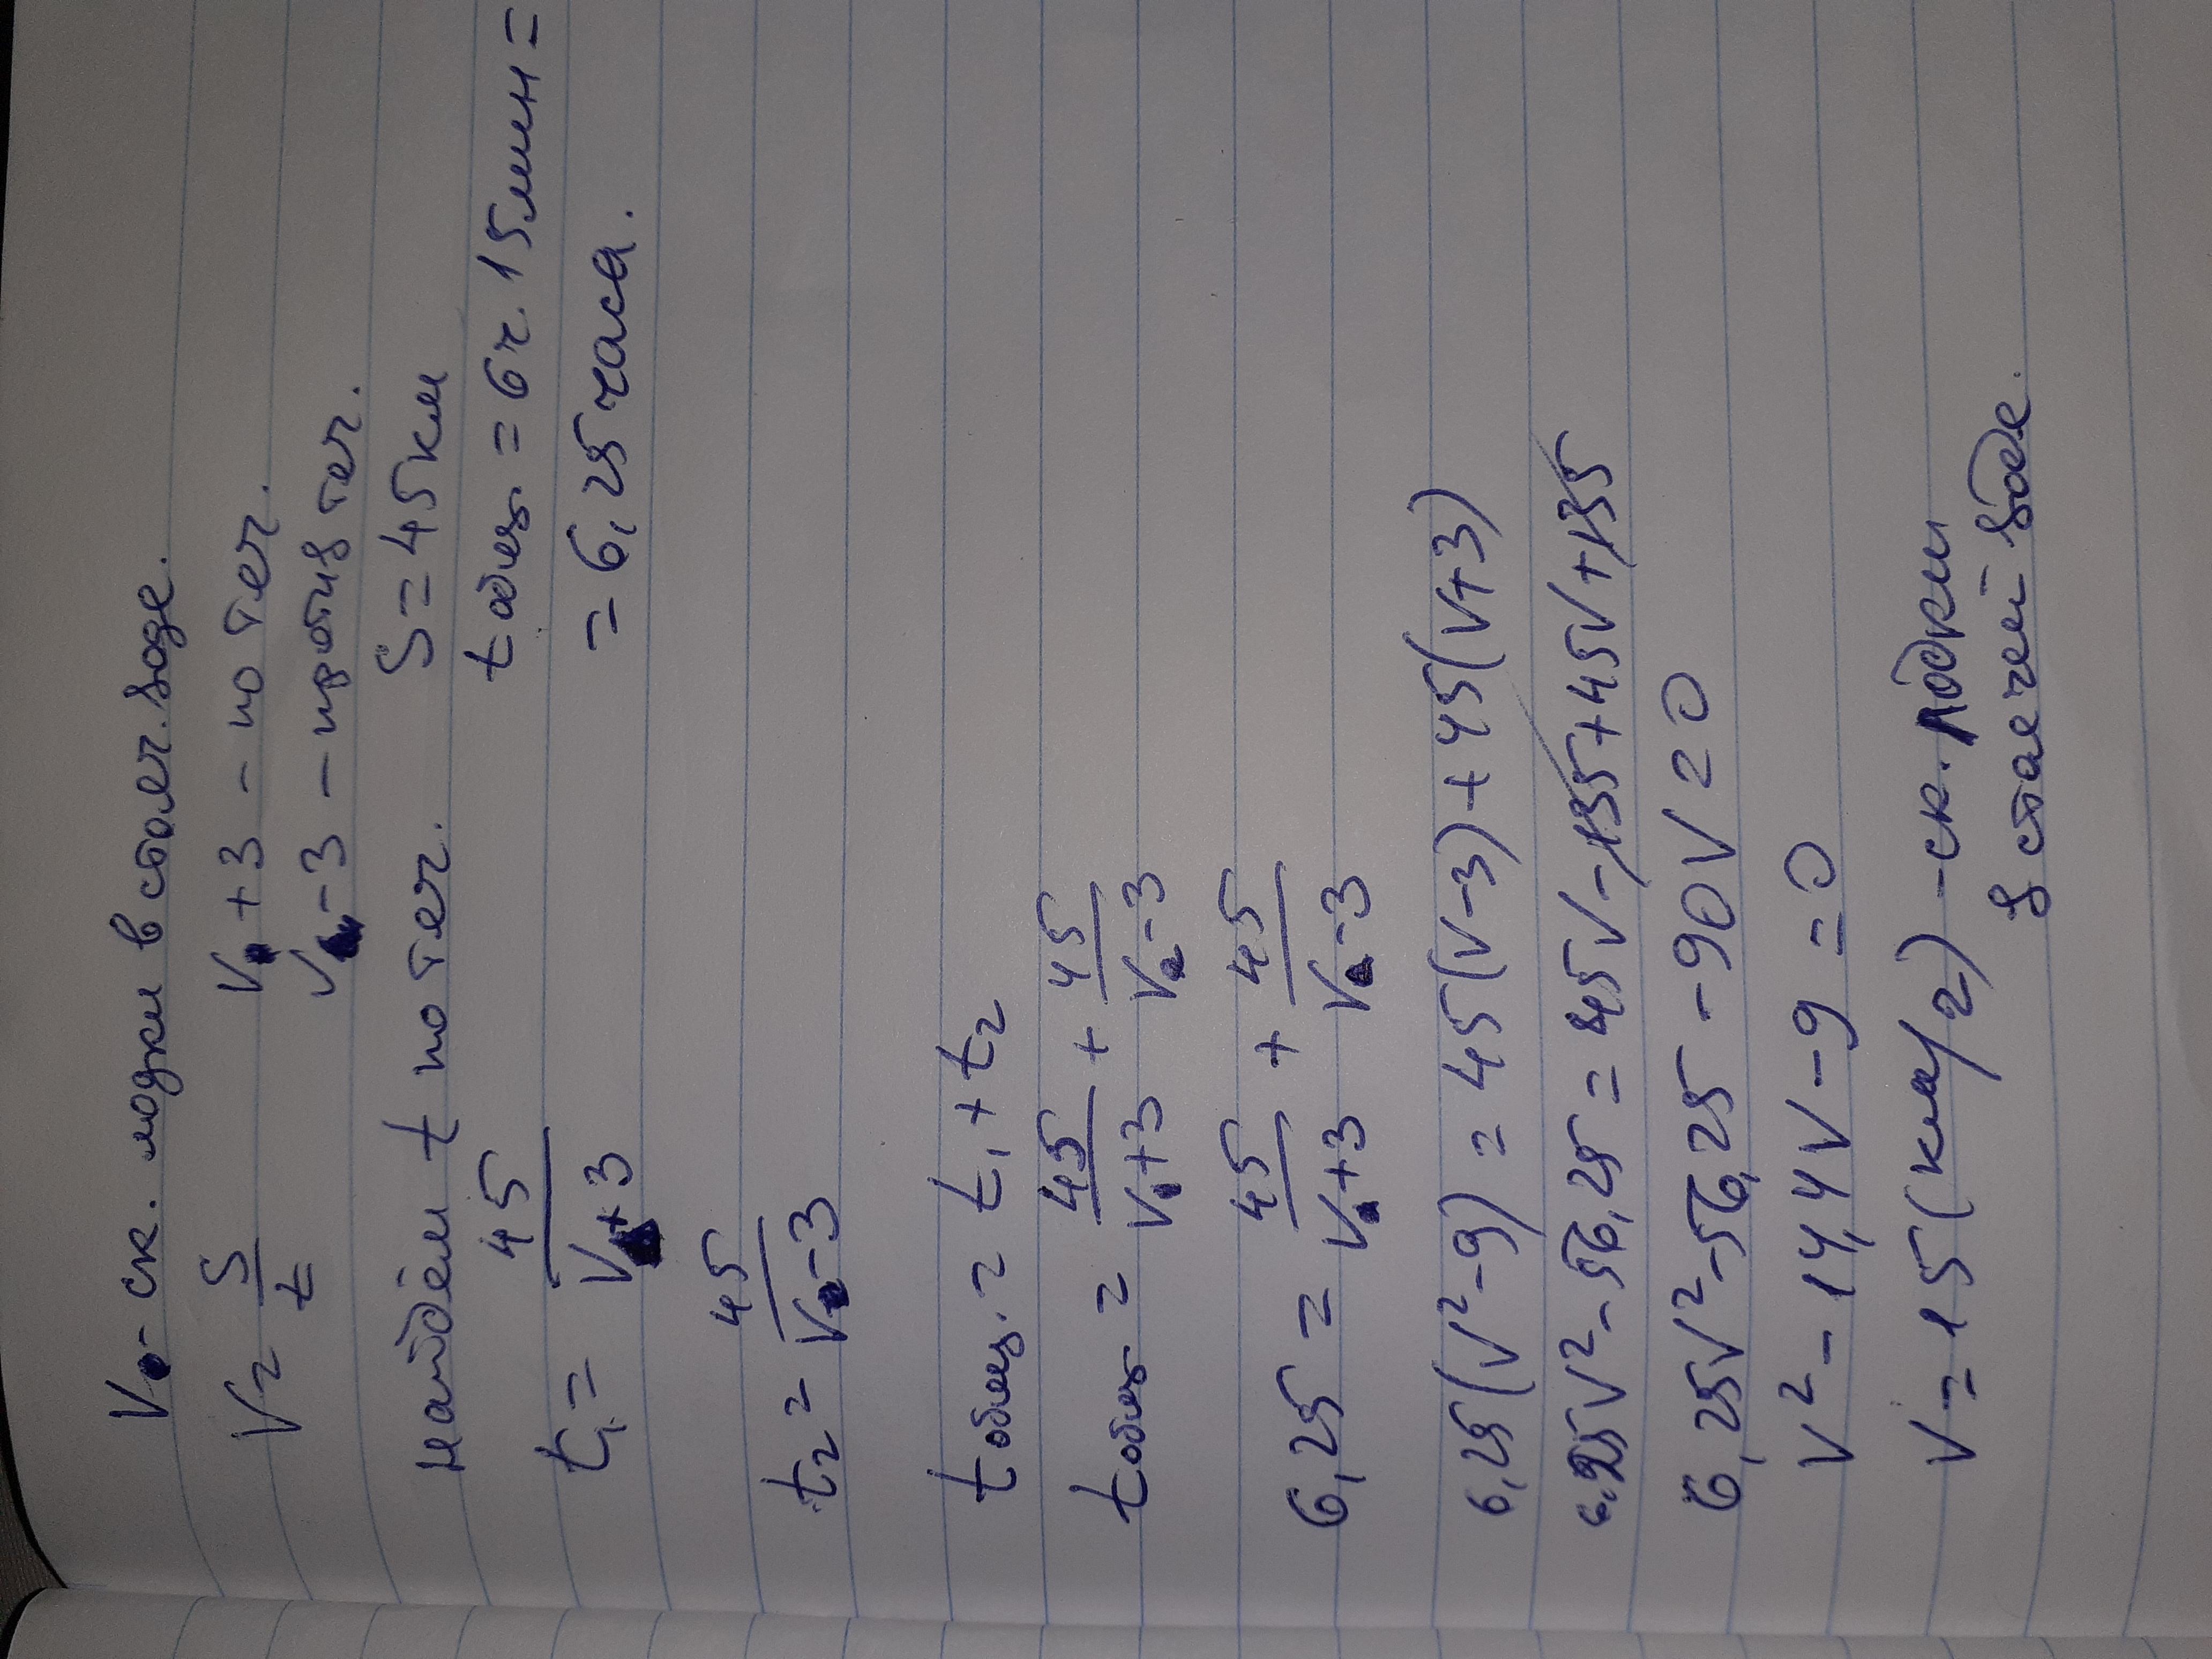 V - ск. лодки в стояч. воде.
V = S/t
V + 3 - по теч.
V - 3 - против теч.
найдём t по теч. S = 45 км
t₁ = 45/(V + 3)
t общ. = 6 ч. 15 мин =
= 6,25 часа.
t₂ = 45/(V - 3)
t общ. = t₁ + t₂
t общ = 45/(V + 3) + 45/(V - 3)
6,25 = 45/(V + 3) + 45/(V - 3)
6,25(V² - 9) = 45(V - 3) + 45(V + 3)
6,25V² - 56,25 = 45V - 135 + 45V + 135
6,25V² - 56,25 - 90V = 0
V² - 14,4V - 9 = 0
V = 15 (км/ч) - ск. лодки
в стоячей воде.